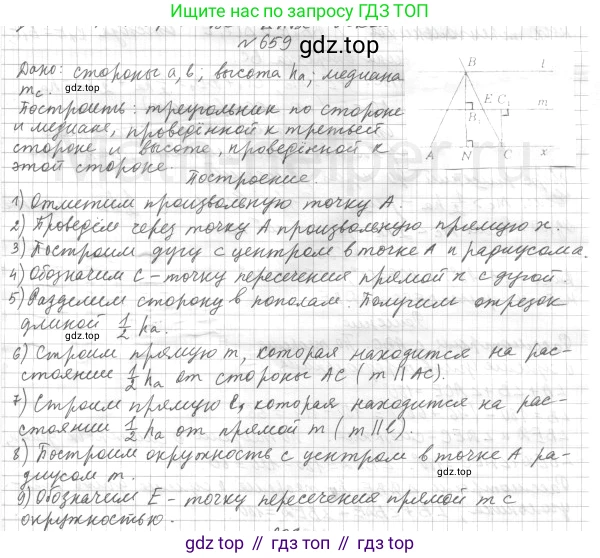 Ищите нас по запросу ГДЗ ТОП
N 659
gdz.top
Дано: стороны a, b; высота ha; медиана
mc.
gdz.top
Построить: треугольник по стороне
и медиане, проведённой к третьей
стороне и высоте, проведённой к
этой стороне.
B l
E C1 m
B1
A N C x
Построение.
1) Отметим произвольную точку A.
2) Проведём через точку A произвольную прямую x.
3) Построим дугу с центром в точке A и радиусом a.
4) Обозначим C – точку пересечения прямой x с дугой.
5) Разделим сторону b пополам. Получим отрезок
длиной 1/2 ha.
gdz.top
6) Строим прямую m, которая находится на рас-
стоянии 1/2 ha от стороны AC (m || AC).
gdz.top
7) Строим прямую l, которая находится на рас-
стоянии 1/2 ha от прямой m (m || l).
8) Построим окружность с центром в точке A ра-
диусом m.
gdz.top
9) Обозначим E – точку пересечения прямой m с
окружностью.
gdz.top // gdz.top // gdz.top